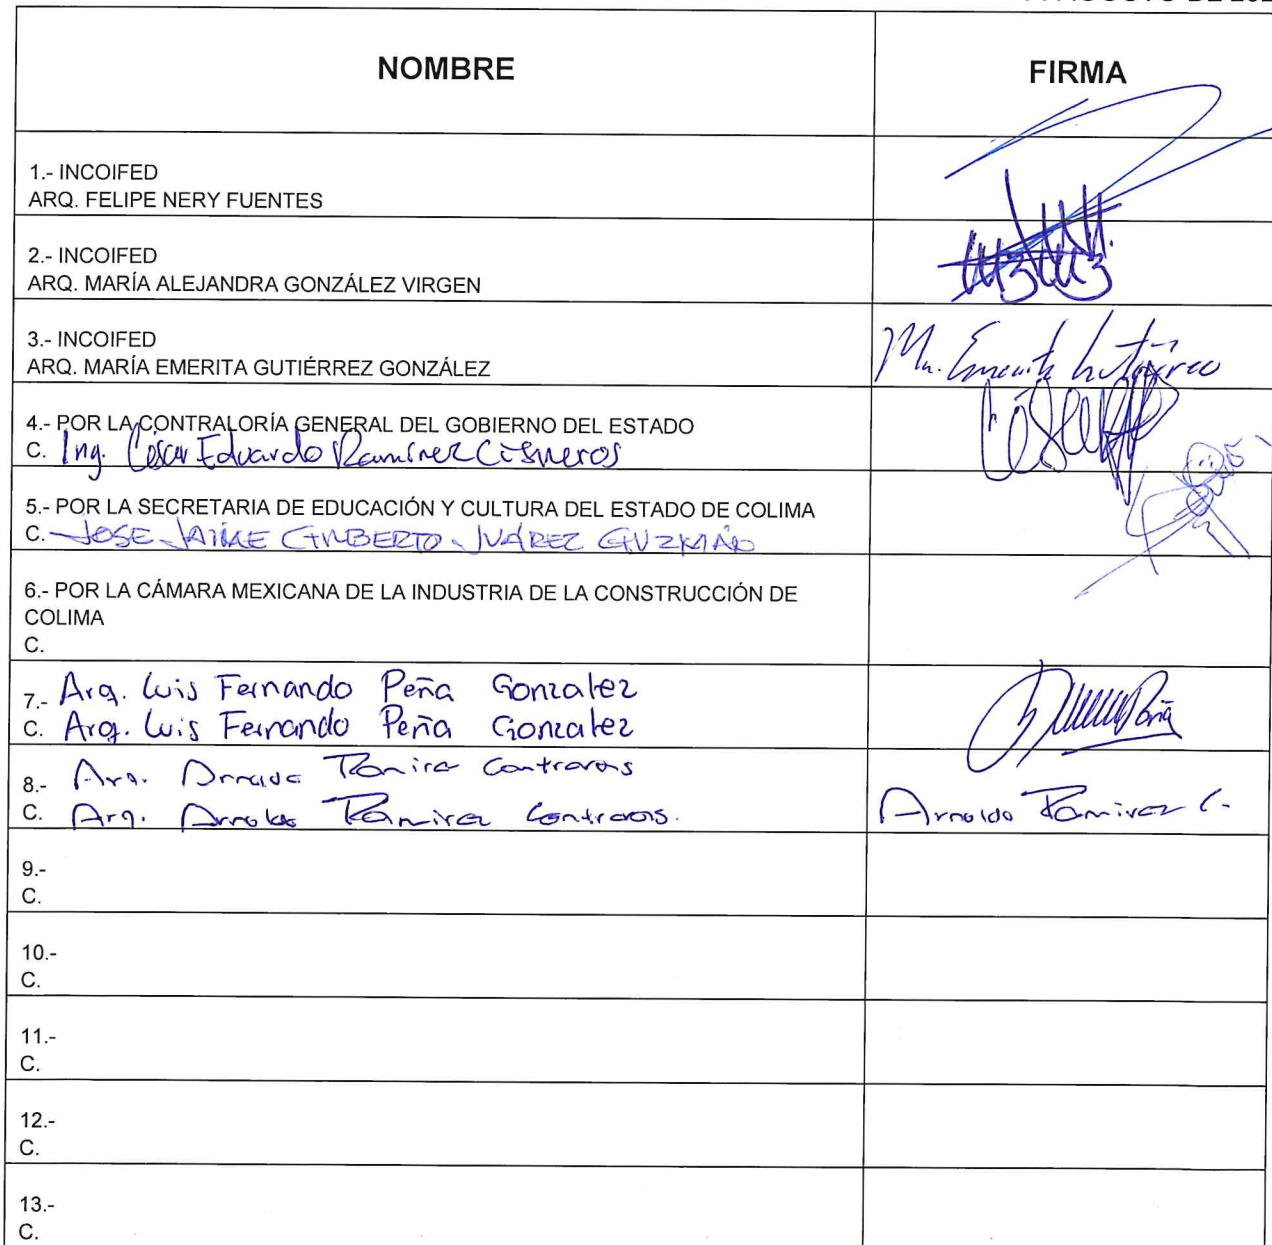 NOMBRE
FIRMA
1.- INCOIFED
ARQ. FELIPE NERY FUENTES
2.- INCOIFED
ARQ. MARÍA ALEJANDRA GONZÁLEZ VIRGEN
3.- INCOIFED
ARQ. MARÍA EMERITA GUTIÉRREZ GONZÁLEZ
Ma. Emerita Gutiérrez
4.- POR LA CONTRALORÍA GENERAL DEL GOBIERNO DEL ESTADO
C. Ing. César Eduardo Ramírez Cisneros
5.- POR LA SECRETARIA DE EDUCACIÓN Y CULTURA DEL ESTADO DE COLIMA
C. JOSE JAIME GILBERTO JUÁREZ GUZMÁN
6.- POR LA CÁMARA MEXICANA DE LA INDUSTRIA DE LA CONSTRUCCIÓN DE
COLIMA
C.
7.- Arq. Luis Fernando Peña Gonzalez
C. Arq. Luis Fernando Peña Gonzalez
8.- Arq. Arnoldo Ramirez Contreras
C. Arq. Arnoldo Ramirez Contreras.
Arnoldo Ramirez C.
9.-
C.
10.-
C.
11.-
C.
12.-
C.
13.-
C.